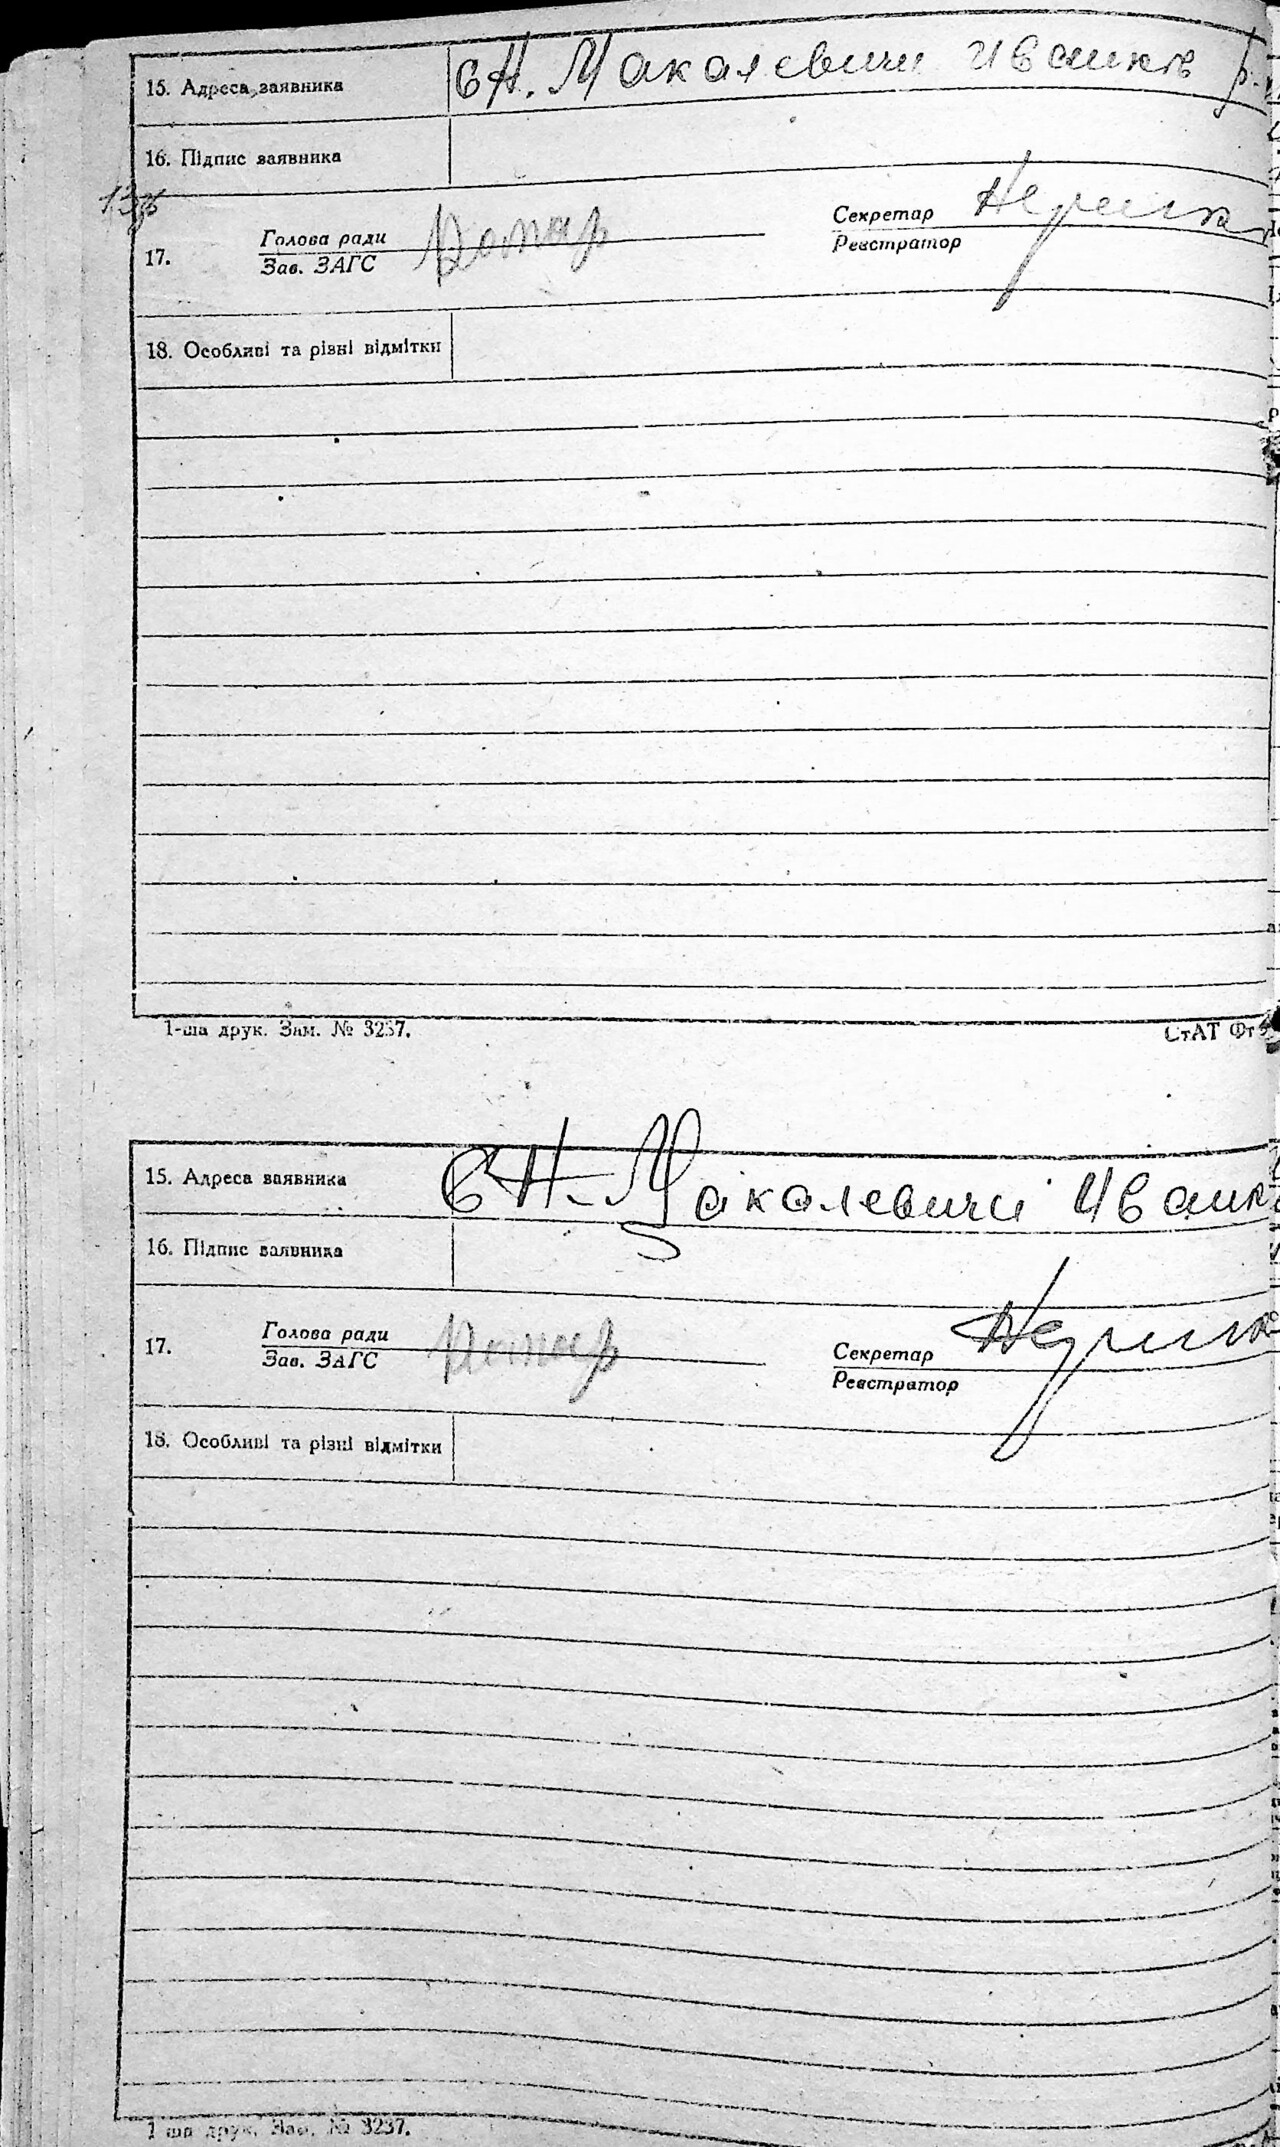 15. Адреса заявника Єн. Макалевичи Иванків р.
16. Підпис заявника
17. Голова ради Секретар
Зав. ЗАГС Реєстратор
18. Особливі та різні відмітки
1-ша друк. Зам. № 3237. СтАТ Фт
15. Адреса заявника Єн. Макалевичи Иванк
16. Підпис заявника
17. Голова ради Секретар
Зав. ЗАГС Реєстратор
18. Особливі та різні відмітки
1 ша друк. Зам. № 3237.